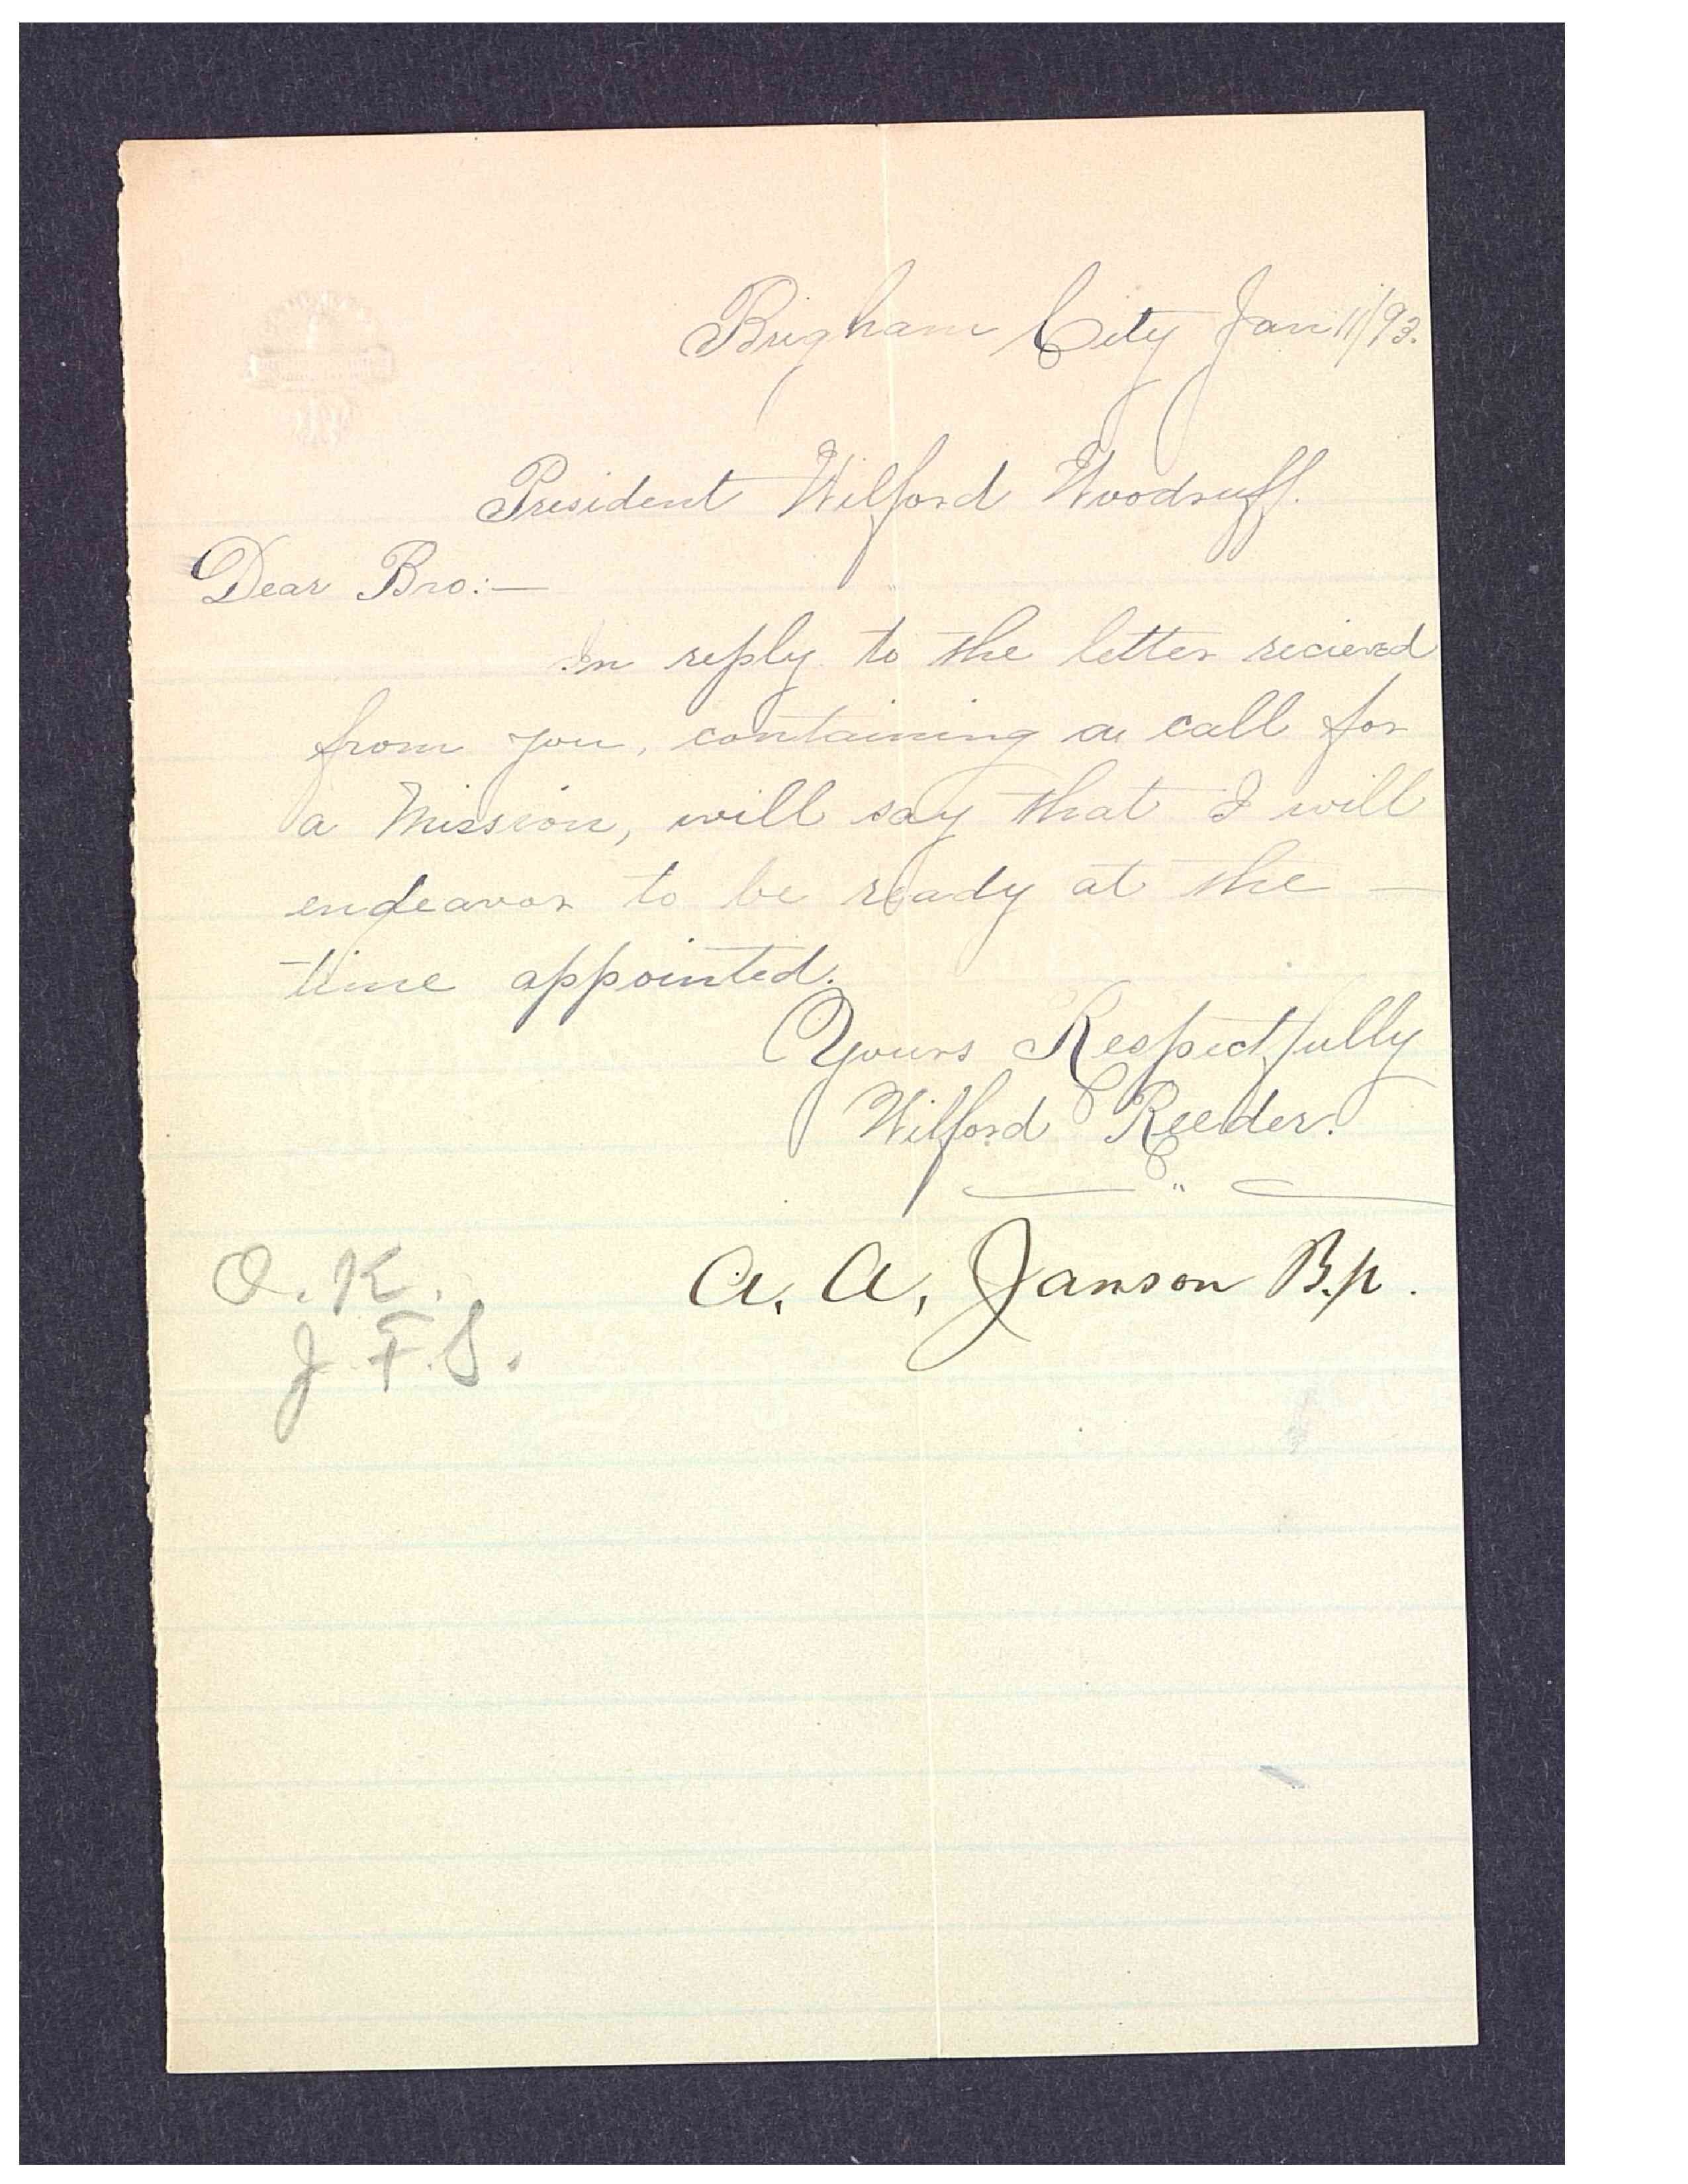 Brigham City Jan 11/93.
President Wilford Woodruff.
Dear Bro:—
In reply to the letter recieved
from you, containing a call for
a Mission, will say that I will
endeavor to be ready at the —
time appointed.
Yours Respectfully
Wilford Reeder.
A. A. Janson Bp.
O. K.
J. F. S.